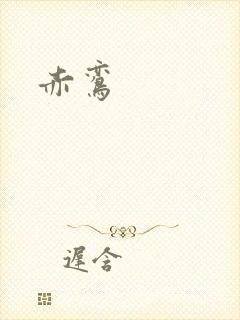 赤鸾
遲含